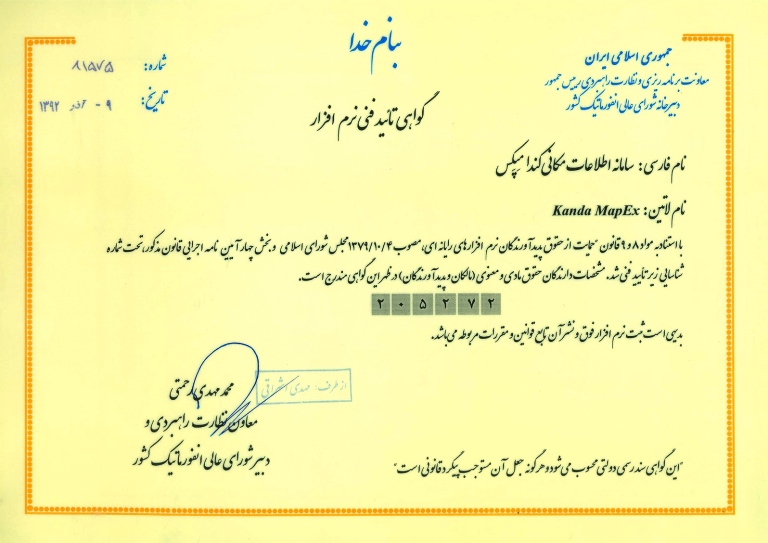 بنام خدا
جمهوری اسلامی ایران
معاونت برنامه ریزی و نظارت راهبردی رییس جمهور
دبیرخانه شورای عالی انفورماتیک کشور
شماره: ۸۱۵۷۵
تاریخ: ۰۹ آذر ۱۳۹۲
گواهی تائید فنی نرم افزار
نام فارسی: سامانه اطلاعات مکانی کندا مپکس
نام لاتین: Kanda MapEx
با استناد به مواد ۸ و ۹ قانون حمایت از حقوق پدیدآورندگان نرم افزارهای رایانه ای، مصوب ۱۳۷۹/۱۰/۴ مجلس شورای اسلامی و بخش چهار آیین نامه اجرایی قانون مذکور، تحت شماره
شناسایی زیر تایید فنی شد. مشخصات دارندگان حقوق مادی و معنوی (مالکان و پدیدآورندگان) در ظهر این گواهی مندرج است.
۲۰۵۲۷۲
بدیهی است ثبت نرم افزار فوق و نشر آن تابع قوانین و مقررات مربوطه می باشد.
از طرف: مهدی اشراقی
محمد مهدی رحمتی
معاون نظارت راهبردی و
دبیر شورای عالی انفورماتیک کشور
"این گواهی سند رسمی دولتی محسوب می شود و هرگونه جعل آن مستوجب پیگرد قانونی است"